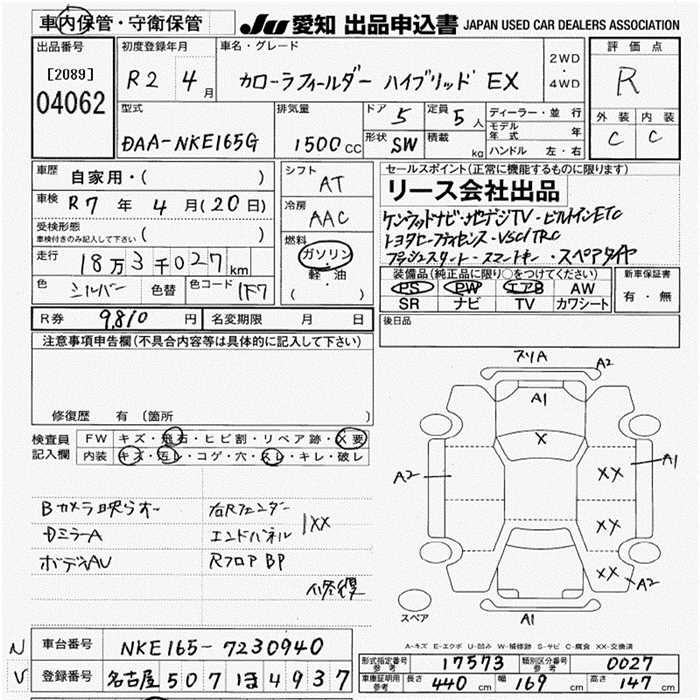 車内保管・守衛保管
JU 愛知 出品申込書 JAPAN USED CAR DEALERS ASSOCIATION
出品番号
[2089]
04062
初度登録年月
R2 4月
車名・グレード
カローラフィールダー ハイブリッド EX
2WD
・
4WD
評価点
R
外装 内装
C C
型式
DAA-NKE165G
排気量
1500 CC
ドア 5
定員 5人
形状 SW
積載 kg
ディーラー・並行
モデル年式 年
ハンドル 左・右
車歴
自家用・( )
車検
R7年 4月(20日)
受検形態
車検付きのみ記入して下さい ( )
走行
18万3千027km
色
シルバー
色替
色コード 1F7
シフト
AT
冷房
AAC
燃料
ガソリン
・
軽・油
( )
セールスポイント(正常に機能するものに限ります)
リース会社出品
ケンウッドナビ・地デジTV・ビルトインETC
トヨタセーフティセンス・VSC/TRC
プッシュスタート・スマートキー・スペアタイヤ
装備品(純正品に限り○をつけてください)
PS PW エアB AW
SR ナビ TV カワシート
新車保証書
有・無
R券 9,810円
名変期限 月 日
後日品
注意事項申告欄(不具合内容等は具体的に記入して下さい)
修復歴 有(箇所 )
検査員記入欄
FW キズ・飛石・ヒビ割・リペア跡・X要
内装 キズ・汚レ・コゲ・穴・スレ・キレ・破レ
Bカメラ映らず
DミラーA
ボディAU
右Rフェンダー
エンドパネル
XX
RフロアBP
修復
スリA
A2
A1
X
A2
XX
A1
XX
XX
A2
A1
スペア
A-キズ E-エクボ U-凹み W-補修跡 S-サビ C-腐食 XX-交換済
車台番号 NKE165-7230940
登録番号 名古屋 507 ほ 4937
型式指定番号 参考 17573
類別区分番号 参考 0027
車庫証明用 参考 長さ 440 cm 幅 169 cm 高さ 147 cm